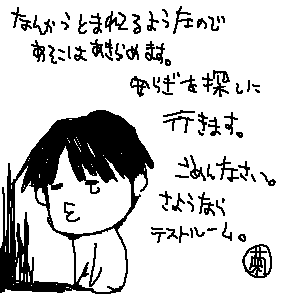 なんかうとまれてるようなので
あそこはあきらめます。
安らぎを探しに
行きます。
ごめんなさい。
さようなら
テストルーム。
菊